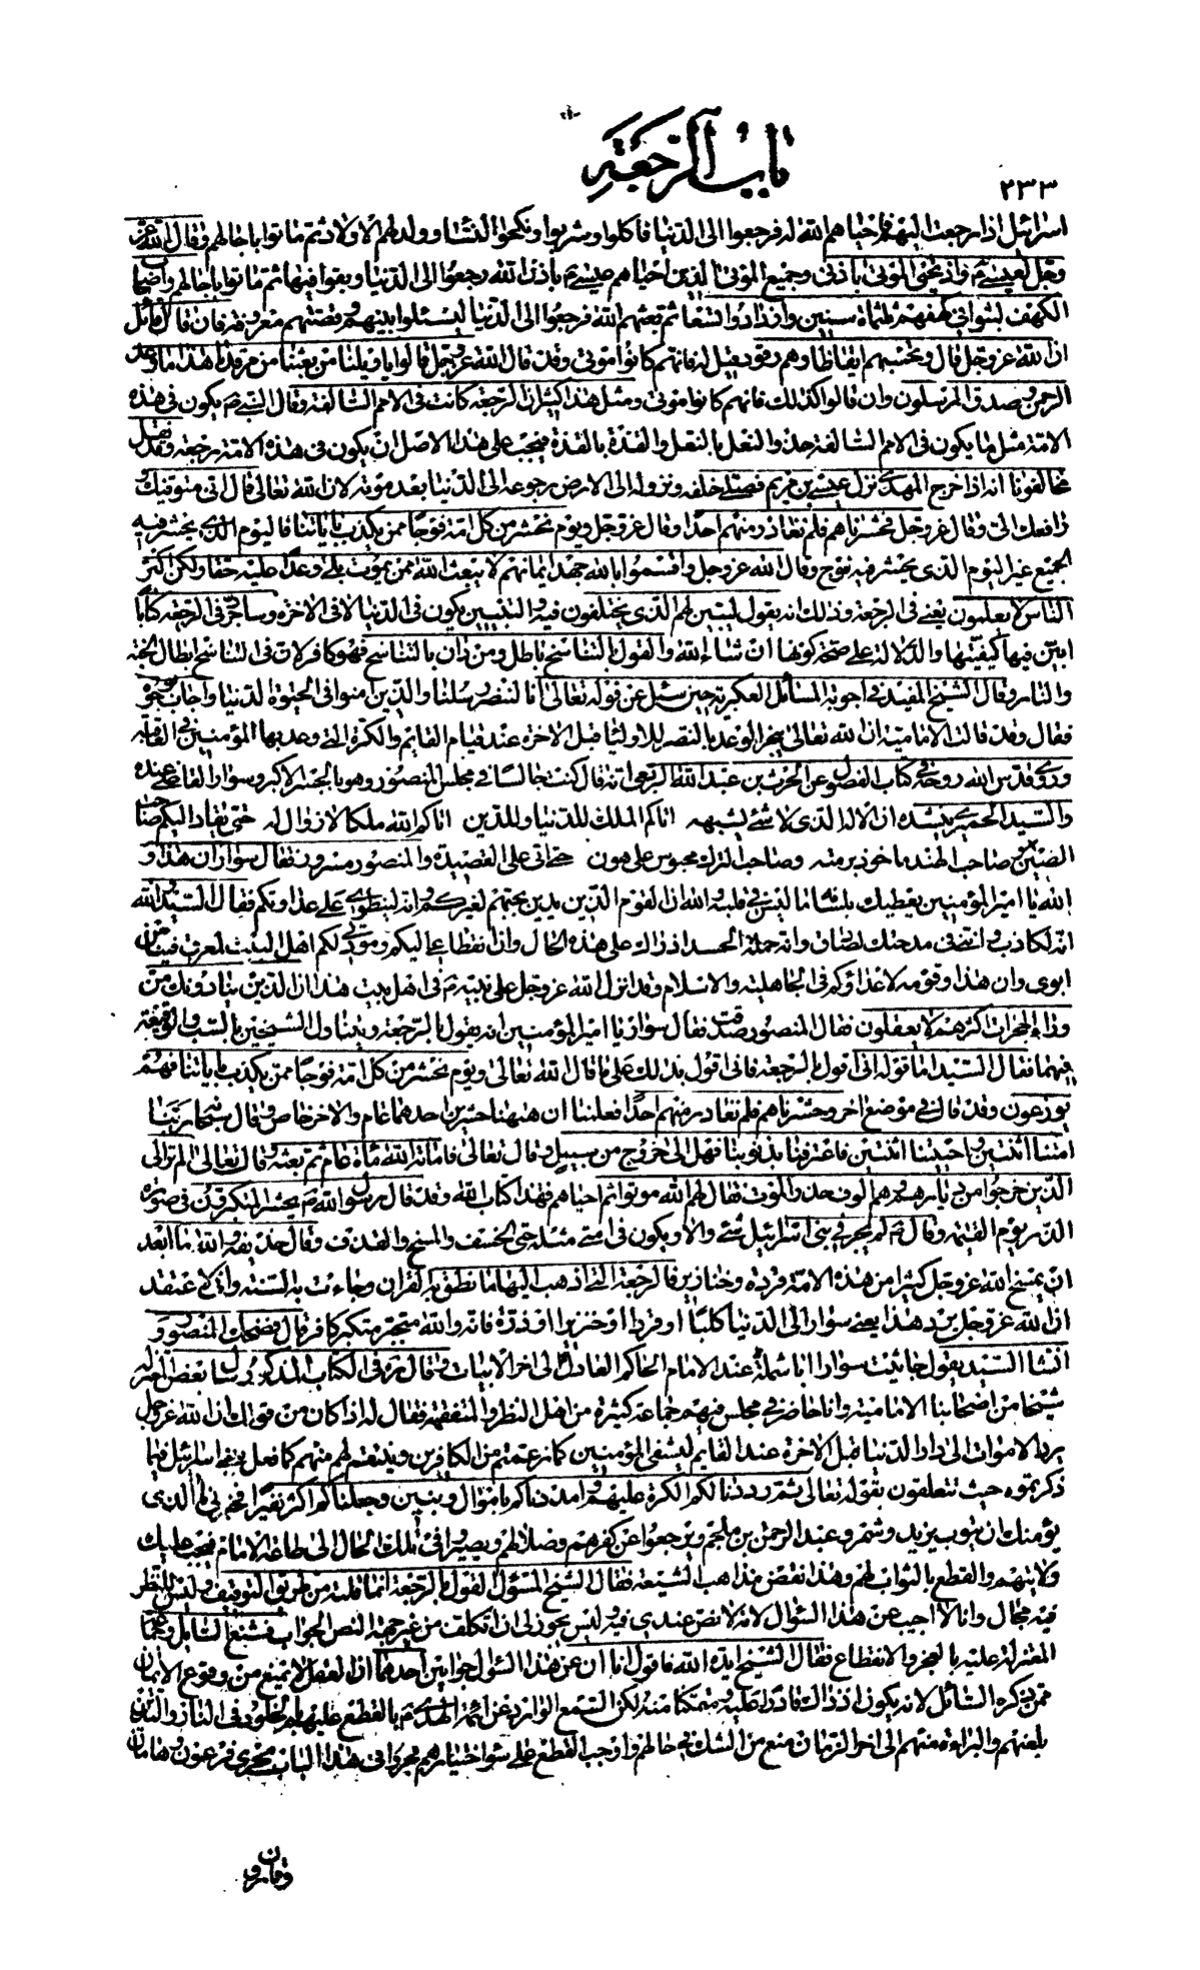 باب الرجعة
٢٣٣
اسرائيل اذا رجعت اليهم فاحياهم الله له فرجعوا الى الدنيا فاكلوا وشربوا ونكحوا النساء وولد لهم الاولاد ثم ماتوا باجالهم وقال الله عز
وجل لعيسى ع واذ تحيي الموتى باذني وجميع الموتى الذين احياهم عيسى ع باذن الله رجعوا الى الدنيا وبقوا فيها ثم ماتوا باجالهم واصحاب
الكهف لبثوا في كهفهم ثلثمائة سنين وازدادوا تسعا ثم بعثهم الله فرجعوا الى الدنيا ليسئلوا بينهم وقصتهم معروفة فان قال قائل
ان الله عز وجل قال وتحسبهم ايقاظا وهم رقود قيل له فانهم كانوا موتى وقد قال الله عز وجل قالوا يا ويلنا من بعثنا من مرقدنا هذا ما وعد
الرحمن وصدق المرسلون وان قالوا كذلك فانهم كانوا موتى ومثل هذا كثير ان الرجعة كانت في الامم السالفة وقال النبي ص يكون في هذه
الامة مثل ما يكون في الامم السالفة حذو النعل بالنعل والقذة بالقذة فيجب على هذا الاصل ان يكون في هذه الامة رجعة وقد نقل
مخالفونا انه اذا خرج المهدي نزل عيسى بن مريم فصلى خلفه ونزوله الى الارض رجوعه الى الدنيا بعد موته لان الله تعالى قال اني متوفيك و
رافعك الي وقال عز وجل فحشرناهم فلم نغادر منهم احدا وقال عز وجل ويوم نحشر من كل امة فوجا ممن يكذب باياتنا فاليوم الذي يحشر فيه
الجميع غير اليوم الذي يحشر فيه فوج وقال الله عز وجل واقسموا بالله جهد ايمانهم لا يبعث الله من يموت بلى وعدا عليه حقا ولكن اكثر
الناس لا يعلمون يعني في الرجعة وذلك انه يقول ليبين لهم الذي يختلفون فيه والتبيين يكون في الدنيا لا في الاخرة وساجرد في الرجعة كتابا
ابين فيها كيفيتها والدلالة على صحة كونها ان شاء الله والقول بالتناسخ باطل ومن دان بالتناسخ فهو كافر لان في التناسخ ابطال الجنة
والنار وقال الشيخ المفيد في اجوبة المسائل العكبرية حين سئل عن قوله تعالى انا لننصر رسلنا والذين امنوا في الحيوة الدنيا واجاب بوجوه
فقال وقد قالت الامامية ان الله تعالى ينجز الوعد بالنصر للاولياء قبل الاخرة عند قيام القائم والكرة التي وعد بها المؤمنين في العاقبة
وروى قدس الله روحه في كتاب الفصول عن الحرث بن عبد الله الربعي انه قال كنت جالسا في مجلس المنصور وهو بالجسر الاكبر وسوار القاضي عنده
والسيد الحميري ينشده ان الاله الذي لا شئ يشبهه اتاكم الملك للدنيا وللدين اتاكم الله ملكا لا زوال له حتى يقاد اليكم صاحب
الصين وصاحب الهند ماخوذ برمته وصاحب الترك محبوس على هون حتى اتى على القصيدة والمنصور مسرور فقال سوار ان هذا و
الله يا امير المؤمنين يعطيك بلسانه ما ليس في قلبه والله ان القوم الذين يدين بحبهم لغيركم وانه لينطوي على عداوتكم فقال السيد والله
انه لكاذب وانني في مدحتك لصادق وانه حمله الحسد اذ راك على هذه الحال وان انقطاعي اليكم ومودتي لكم اهل البيت لمعرق فينا من
ابوي وان هذا وقومه لاعداؤكم في الجاهلية والاسلام وقد انزل الله عز وجل على نبيه ص في اهل بيت هذا ان الذين ينادونك من
وراء الحجرات اكثرهم لا يعقلون فقال المنصور صدقت فقال سوار يا امير المؤمنين انه يقول بالرجعة ويتناول الشيخين بالسب والوقيعة
فيهما فقال السيد اما قوله اني اقول بالرجعة فاني اقول بذلك على ما قال الله تعالى ويوم نحشر من كل امة فوجا ممن يكذب باياتنا فهم
يوزعون وقد قال في موضع اخر وحشرناهم فلم نغادر منهم احدا فعلمنا ان هيهنا حشرين احدهما عام والاخر خاص وقال سبحانه ربنا
امتنا اثنتين واحييتنا اثنتين فاعترفنا بذنوبنا فهل الى خروج من سبيل وقال تعالى فاماته الله مائة عام ثم بعثه وقال تعالى الم تر الى
الذين خرجوا من ديارهم وهم الوف حذر الموت فقال لهم الله موتوا ثم احياهم فهذا كتاب الله وقد قال رسول الله ص يحشر المتكبرون في صورة
الذر يوم القيمة وقال ص لم يجر في بني اسرائيل شئ والا ويكون في امتي مثله حتى الخسف والمسخ والقذف وقال حذيفة والله ما ابعد
ان يمسخ الله عز وجل كثيرا من هذه الامة قردة وخنازير فالرجعة التي اذهب اليها ما نطق به القران وجاءت به السنة واني لاعتقد
ان الله عز وجل يرد هذا يعني سوارا الى الدنيا كلبا او قردا او خنزيرا او ذرة فانه والله متجبر متكبر كافر قال فضحك المنصور و
انشا السيد يقول جاثيت سوارا ابا شملة عند الامام الحاكم العادل الى اخر الابيات وقال ره في الكتاب المذكور سال بعض المعتزلة
شيخا من اصحابنا الامامية وانا حاضر في مجلس فيهم جماعة كثيرة من اهل النظر والمتفقهة فقال له اذا كان من قولك ان الله عز وجل
يرد الاموات الى دار الدنيا قبل الاخرة عند القائم ليشفي المؤمنين كما زعمتم من الكافرين وينتقم لهم منهم كما فعل ببني اسرائيل فيما
ذكرتموه حيث تتعلقون بقوله تعالى ثم رددنا لكم الكرة عليهم وامددناكم باموال وبنين وجعلناكم اكثر نفيرا فخبرني ما الذي
يؤمنك ان يتوب يزيد وشمر وعبد الرحمن بن ملجم ويرجعوا عن كفرهم وضلالهم ويصيروا في تلك الحال الى طاعة الامام فيجب عليك
ولايتهم والقطع بالثواب لهم وهذا نقض مذاهب الشيعة فقال الشيخ المسؤل القول بالرجعة انما قلته من طريق التوقيف وليس للنظر
فيه مجال وانا لا اجيب عن هذا السؤال لانه لا نص عندي فيه وليس يجوز لي ان اتكلف من غير جهة النص الجواب فشنع السائل وجماعة
المعتزلة عليه بالعجز والانقطاع فقال الشيخ ايده الله فاقول انا ان عن هذا السؤل جوابين احدهما ان العقل لا يمنع من وقوع الايمان
ممن ذكره السائل لانه يكون اذ ذاك قادرا عليه ومتمكنا منه لكن السمع الوارد عن ائمة الهدى ع بالقطع عليهم بالخلود في النار والتدين
بلعنهم والبراءة منهم الى اخر الزمان منع من الشك في حالهم واوجب القطع على سوء اختيارهم فجروا في هذا الباب مجرى فرعون وهامان
وقارون